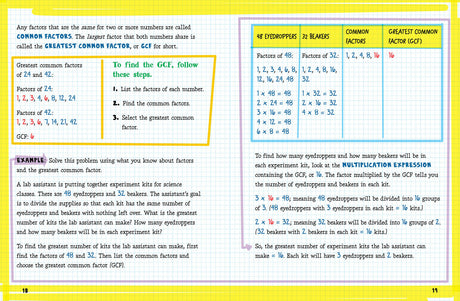 Any factors that are the same for two or more numbers are called
COMMON FACTORS. The largest factor that both numbers share is
called the GREATEST COMMON FACTOR, or GCF for short.
Greatest common factors
of 24 and 42:
Factors of 24:
1, 2, 3, 4, 6, 8, 12, 24
Factors of 42:
1, 2, 3, 6, 7, 14, 21, 42
GCF: 6
To find the GCF, follow
these steps.
1. List the factors of each number.
2. Find the common factors.
3. Select the greatest common
factor.
EXAMPLE: Solve this problem using what you know about factors
and the greatest common factor.
A lab assistant is putting together experiment kits for science
classes. There are 48 eyedroppers and 32 beakers. The assistant's goal
is to divide the supplies so that each kit has the same number of
eyedroppers and beakers with nothing left over. What is the greatest
number of kits the lab assistant can make? How many eyedroppers
and how many beakers will be in each experiment kit?
To find the greatest number of kits the lab assistant can make, first
find the factors of 48 and 32. Then list the common factors and
choose the greatest common factor (GCF).
18
48 EYEDROPPERS 32 BEAKERS COMMON FACTORS GREATEST COMMON FACTOR (GCF)
Factors of 48: Factors of 32: 1, 2, 4, 8, 16 16
1, 2, 3, 4, 6, 8, 1, 2, 4, 8, 16,
12, 16, 24, 48 32
1 x 48 = 48 1 x 32 = 32
2 x 24 = 48 2 x 16 = 32
3 x 16 = 48 4 x 8 = 32
4 x 12 = 48
6 x 8 = 48
To find how many eyedroppers and how many beakers will be in
each experiment kit, look at the MULTIPLICATION EXPRESSION
containing the GCF, or 16. The factor multiplied by the GCF tells you
the number of eyedroppers and beakers in each kit.
3 x 16 = 48; meaning 48 eyedroppers will be divided into 16 groups
of 3. (48 eyedroppers with 3 eyedroppers in each kit = 16 kits.)
2 x 16 = 32; meaning 32 beakers will be divided into 16 groups of 2.
(32 beakers with 2 beakers in each kit = 16 kits.)
So, the greatest number of experiment kits the lab assistant can
make = 16. Each kit will have 3 eyedroppers and 2 beakers.
19